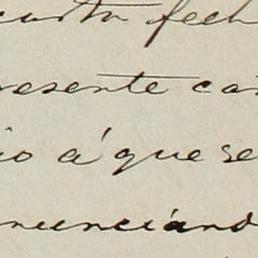 carta fech
resente ca
io á que se
nunciand